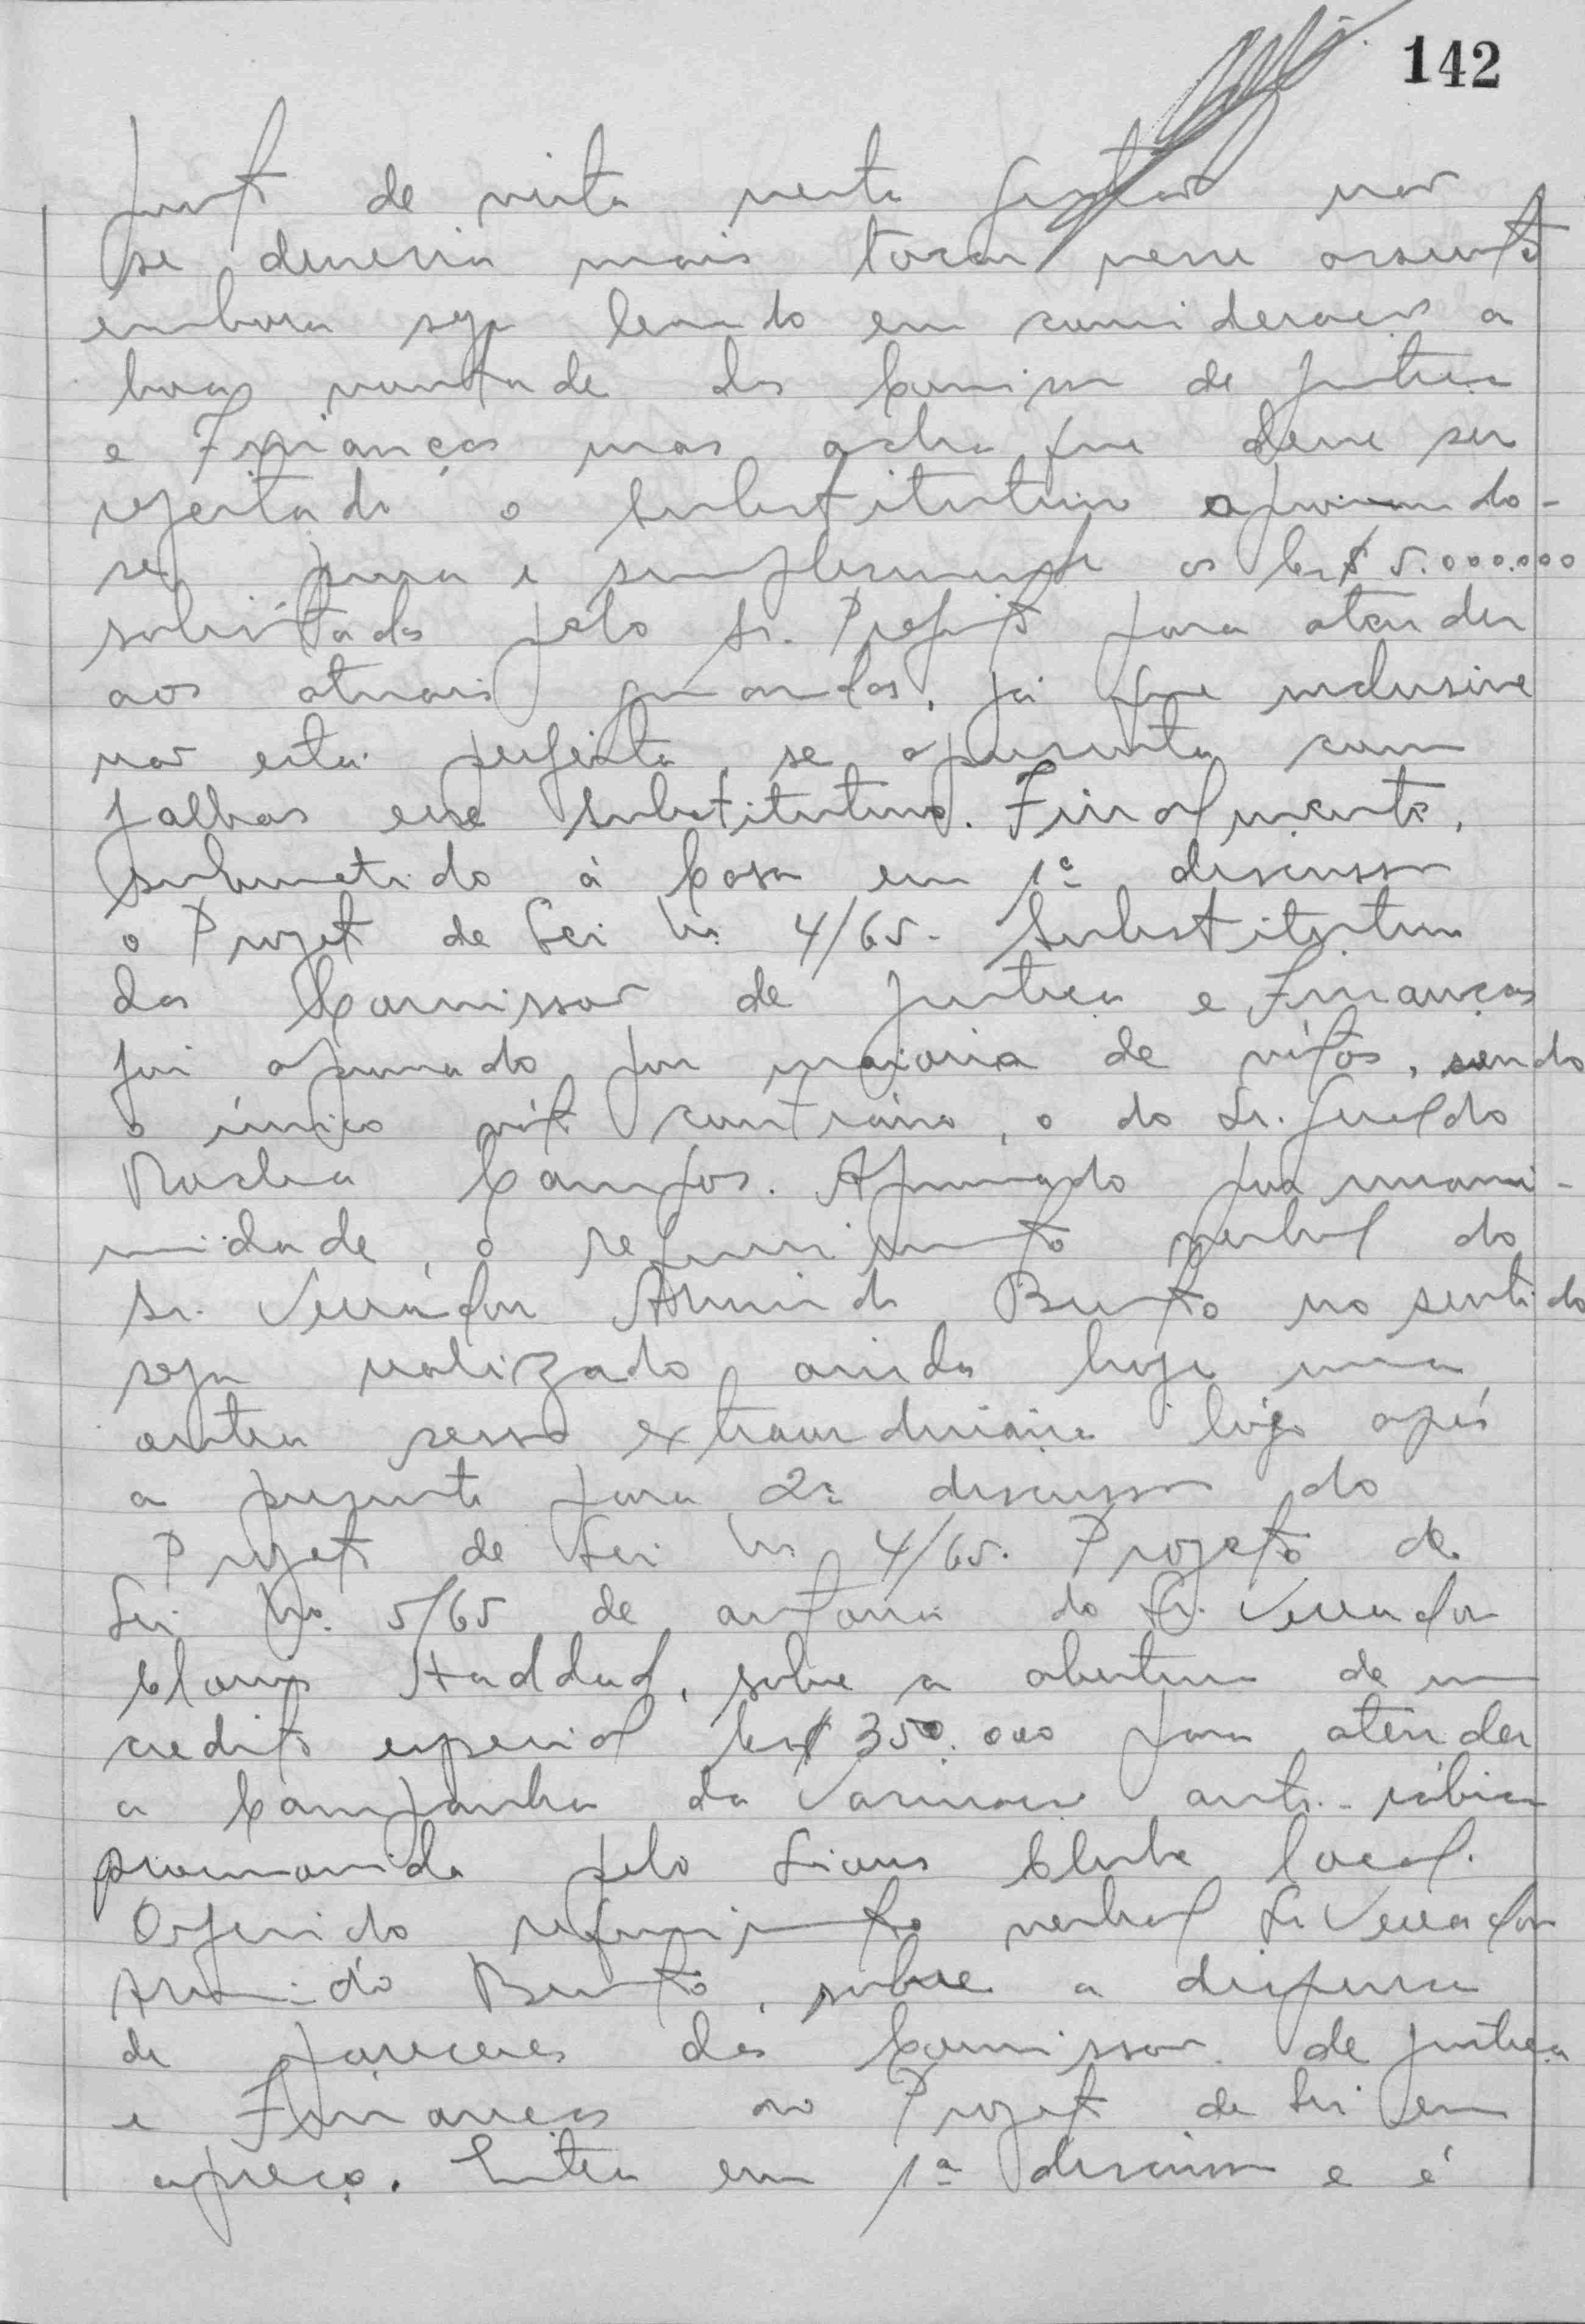 142
ponto de vista nesta questão não
se deveria mais tocar nesse assunto
embora seja levado em consideração a
boas vontade das Comissão de Justiça
e Finanças mas acha que deve ser
rejeitado o substitutivo aprovando-
se pura e simplesmente os Cr$ 5.000.000
solicitados pelo Sr. Prefeito para atender
aos atuais guardas, já que inclusive
não está perfeita, se apresenta com
falhas esse substitutivo. Finalmente,
submetido à Casa em 1ª discussão
o Projeto de Lei Nº 4/65. Substitutivo
das Comissão de Justiça e Finanças
foi aprovado por maioria de vótos, sendo
o único vóto contrário, o do Sr. Geraldo
Rocha Campos. Aprovado por unani-
midade, o requerimento verbal do
Sr. Vereador Armindo Bento no sentido
seja realizado ainda hoje uma
outra sessão extraordinária lógo após
a presente para 2ª discussão do
Projeto de Lei Nº 4/65. Projeto de
Lei Nº. 5/65 de autoria do Sr. Vereador
Clovis Haddad, sobre a abertura de um
credito especial Cr$ 350.000 para atender
a Campanha da Vacinação anti-rábica
promovida pelo Lions Clube local.
Deferido requerimento verbal Sr Vereador
Armindo Bento, sobre a dispensa
de pareceres das Comissão de Justiça
e Finanças ao Projeto de Lei em
apreço. Entra em 1ª discussão e é